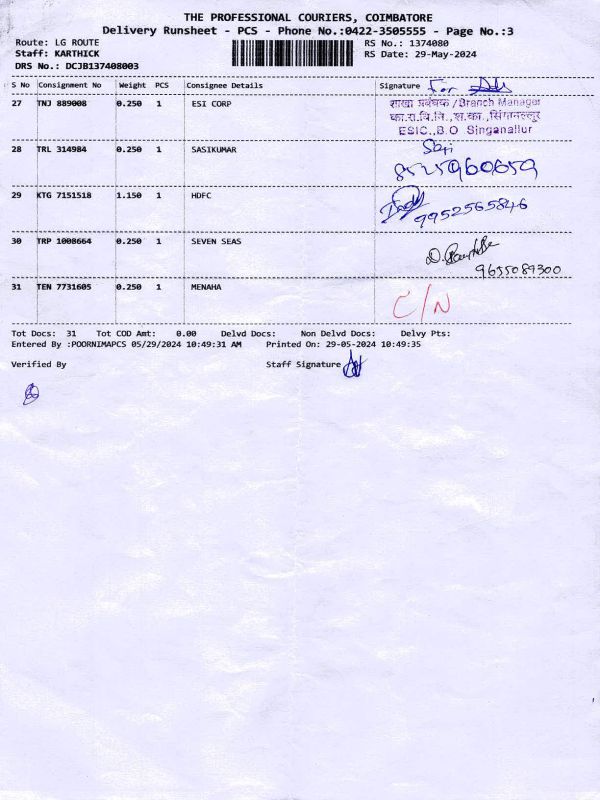 THE PROFESSIONAL COURIERS, COIMBATORE
Delivery Runsheet - PCS - Phone No.:0422-3505555 - Page No.:3
Route: LG ROUTE
RS No.: 1374080
Staff: KARTHICK
RS Date: 29-May-2024
DRS No.: DCJB137408003
S No Consignment No Weight PCS Consignee Details Signature For
27 TNJ 889008 0.250 1 ESI CORP
शाखा प्रबंधक/Branch Manager
का.रा.बि.नि.,श.का.,सिंगानल्लूर
ESIC.,B.O Singanallur
28 TRL 314984 0.250 1 SASIKUMAR
8525960659
29 KTG 7151518 1.150 1 HDFC
9952565846
30 TRP 1008664 0.250 1 SEVEN SEAS
9655089300
31 TEN 7731605 0.250 1 MENAHA
C/N
Tot Docs: 31 Tot COD Amt: 0.00 Delvd Docs: Non Delvd Docs: Delvy Pts:
Entered By :POORNIMAPCS 05/29/2024 10:49:31 AM Printed On: 29-05-2024 10:49:35
Verified By Staff Signature